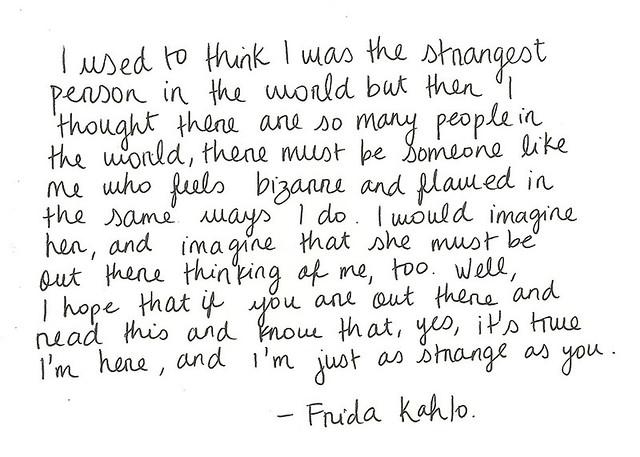 I used to think I was the strangest
person in the world but then I
thought there are so many people in
the world, there must be someone like
me who feels bizarre and flawed in
the same ways I do. I would imagine
her, and imagine that she must be
out there thinking of me, too. Well,
I hope that if you are out there and
read this and know that, yes, it's true
I'm here, and I'm just as strange as you.
– Frida Kahlo.